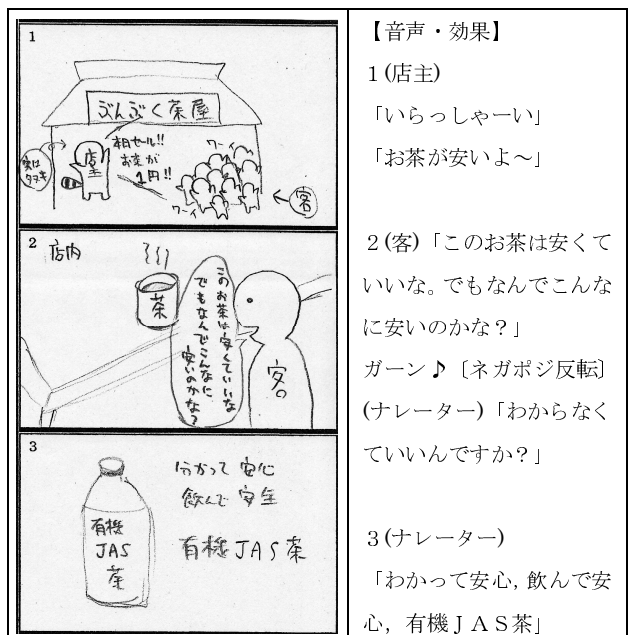 1
ぶんぶく茶屋
実は
タヌキ
店主
本日セール!!
お茶が
1円!!
ワーイ
ワーイ
客
2
店内
茶
このお茶は安くていいな
でもなんでこんなに
安いのかな?
客。
3
有機
JAS
茶
分かって 安心
飲んで 安全
有機JAS茶
【音声・効果】
1(店主)
「いらっしゃーい」
「お茶が安いよ～」
2(客)「このお茶は安くて
いいな。でもなんでこんな
に安いのかな?」
ガーン♪〔ネガポジ反転〕
(ナレーター)「わからなく
ていいんですか?」
3(ナレーター)
「わかって安心,飲んで安
心,有機JAS茶」